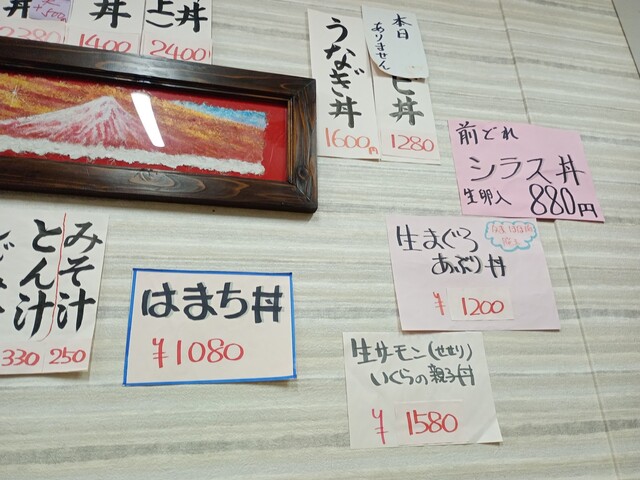 丼
2380
丼
1400
上)丼
2400
うなぎ丼
1600円
本日
ありません
ビ丼
1280
前どれ
シラス丼
生卵入 880円
生まぐろ
あぶり丼
¥1200
みそ汁
とん汁
330 250
はまち丼
¥1080
生サーモン(せせり)
いくらの親子丼
¥1580